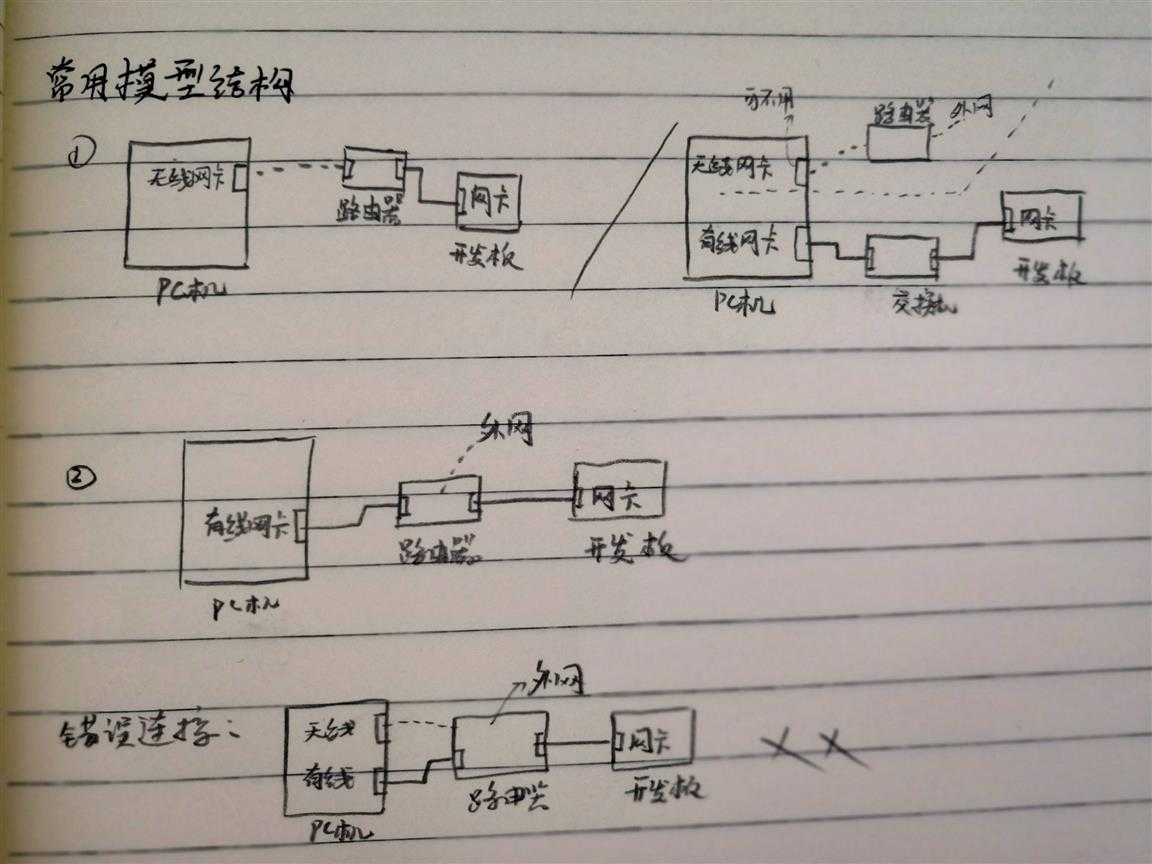 常用模型结构
①
无线网卡
路由器
网卡
开发板
PC机
可不用
路由器
外网
无线网卡
有线网卡
网卡
开发板
PC机
交换机
②
外网
有线网卡
网卡
路由器
开发板
PC机
错误连接:
外网
无线
有线
网卡
路由器
开发板
PC机